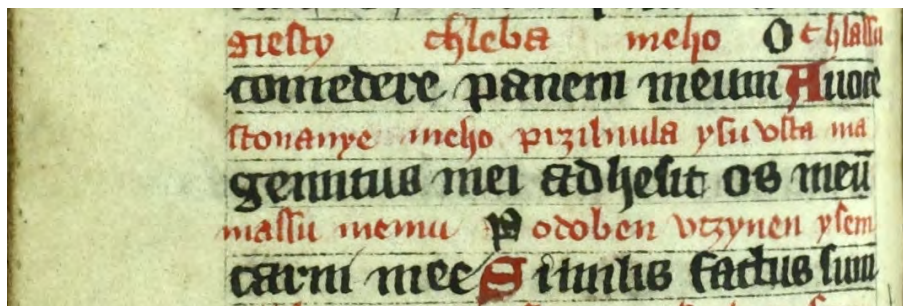 giesty chleba meho O thlassu
comedere panem meum A uoce
stonanye meho przilnula ysu vsta ma
gemitus mei adhesit os meū
massu memu P odoben vczynen ysem
carni mee S imilis factus sum